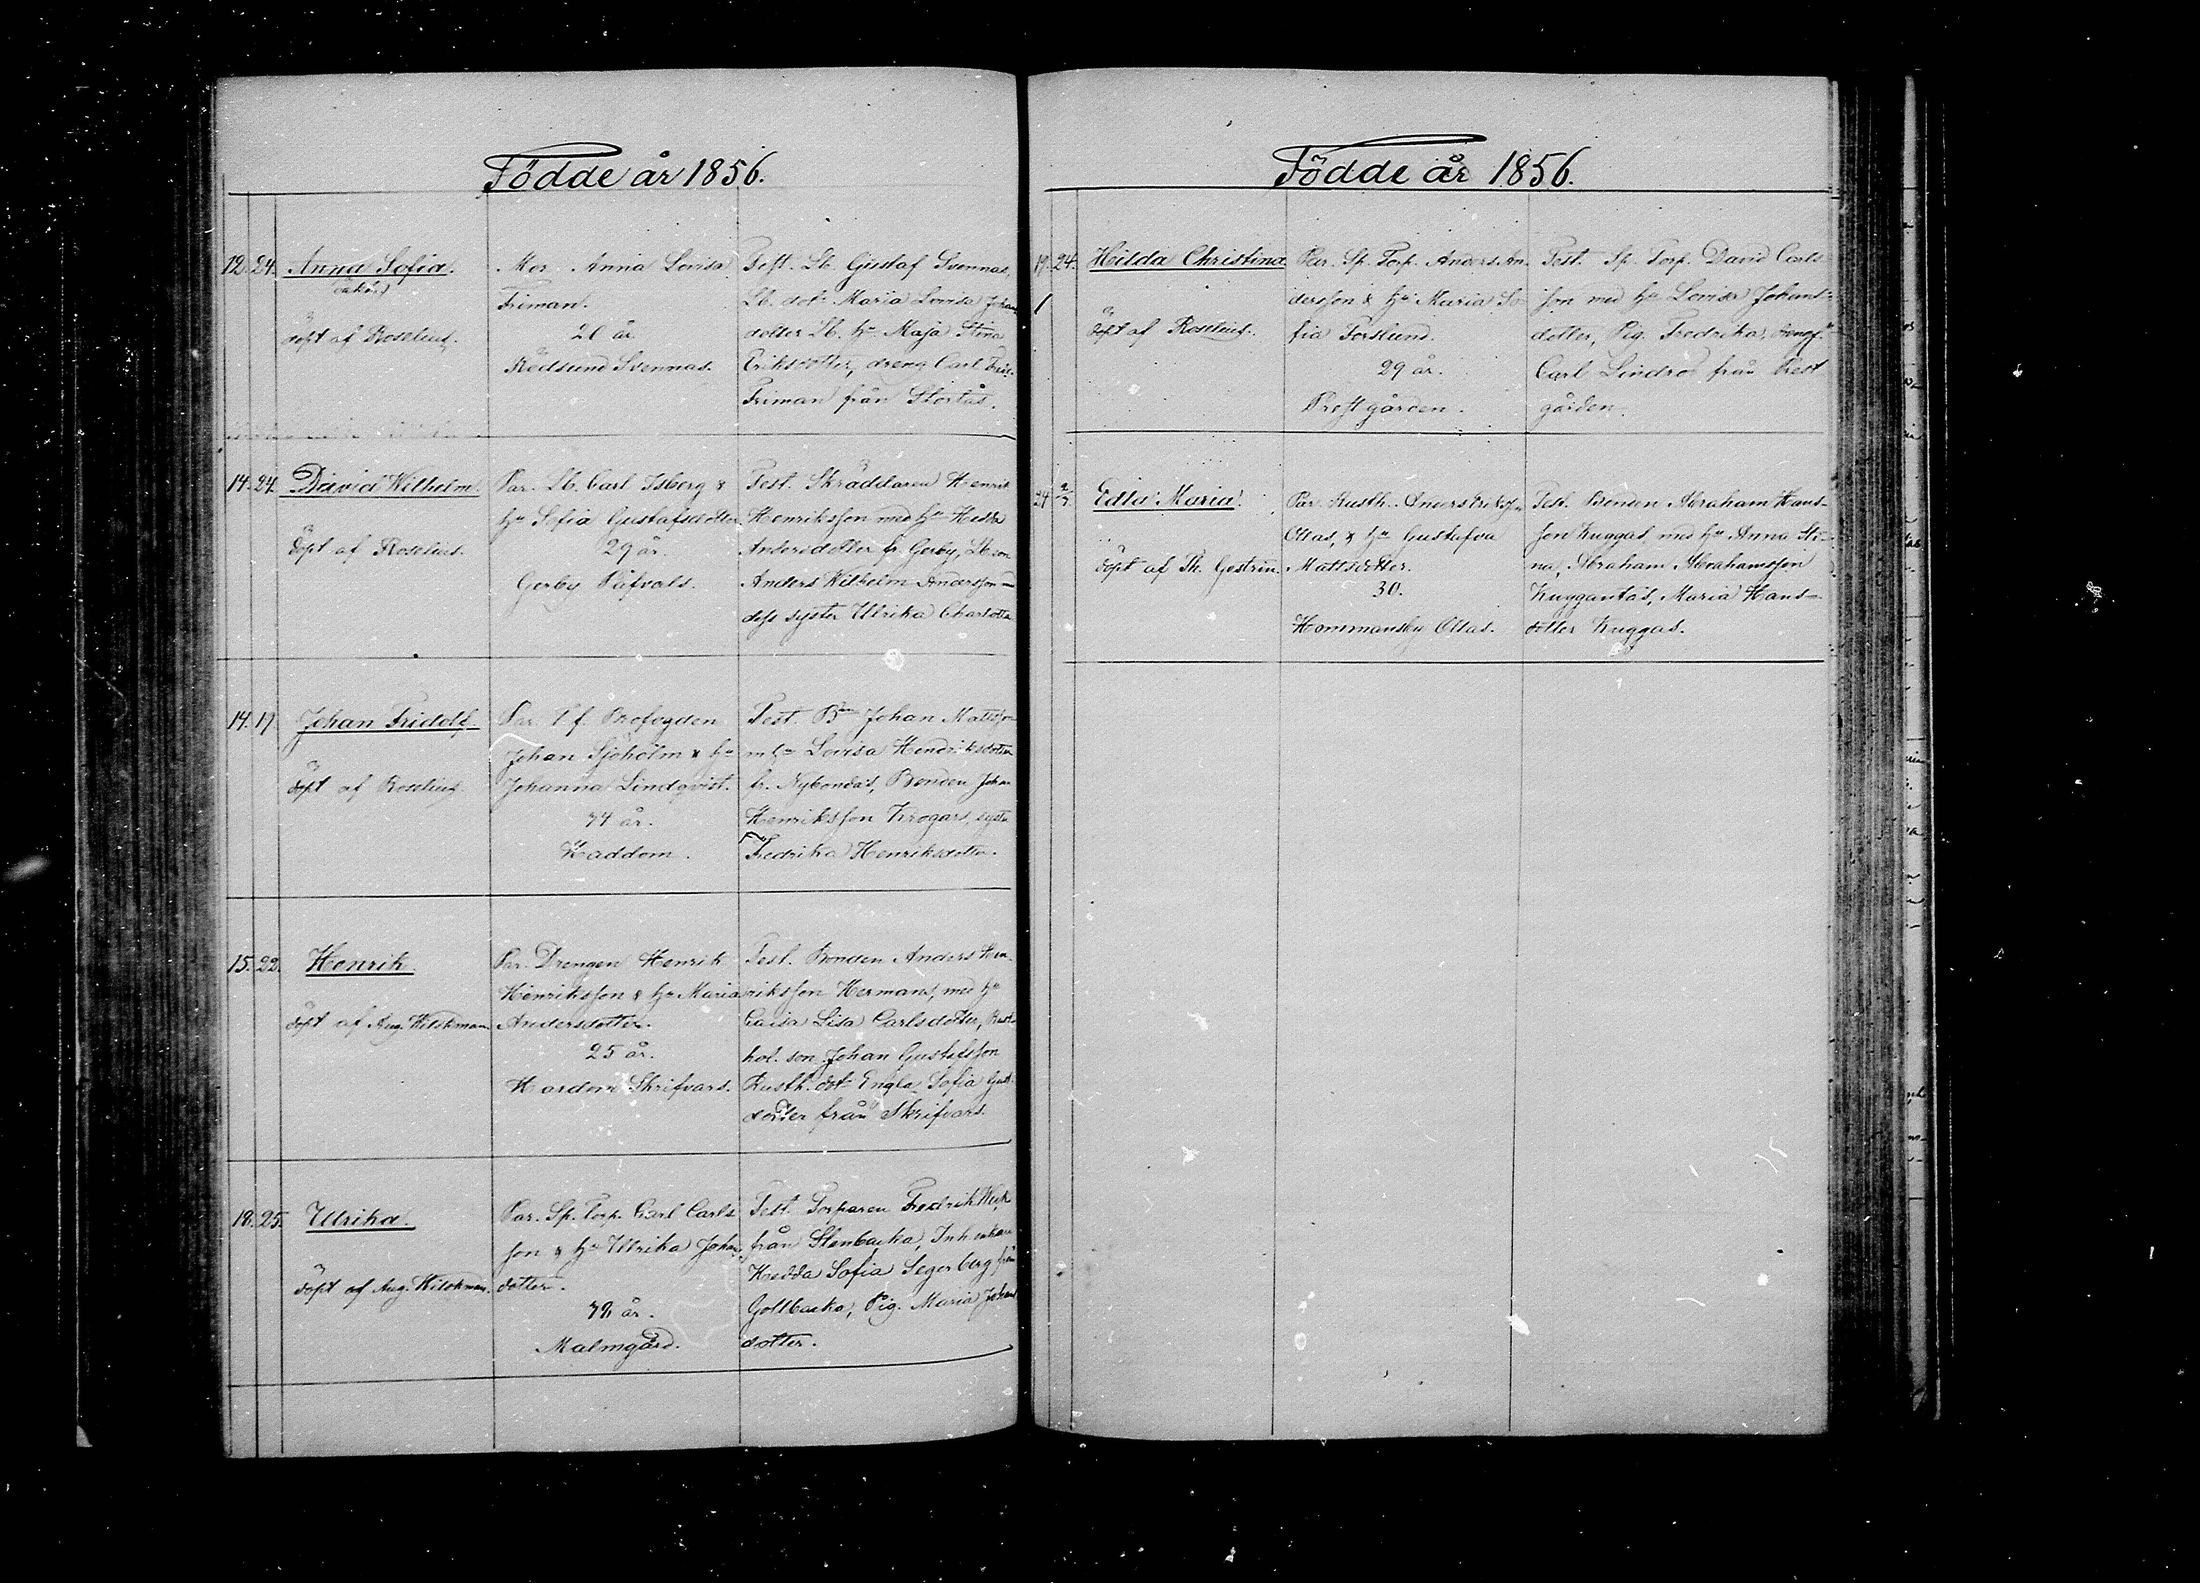 Födde år 1856.
12. 24. Anna Sofia.
(oäkta)
döpt af Roselius.
Mor Anna Lovisa
Friman.
Rödsund Svennas.
Test. Lb. Gustaf Svennas,
Lb. dotr Maria Lovisa Johans
dotter Lb. hu Maja Stina
Eriksdotter, dreng Carl
Friman från Stortås.
14. 24. David Wilhelm.
döpt af Roselius.
Par. Lb. Carl Isberg &
hu Sofia Gustafsdotter
29 år.
Gerby Påfvals.
Test. Skräddaren Henrik
Henriksson med hu Hedda
Andersdotter fr. Gerby, Lb son
Anders Wilhelm Andersson
dess syster Ulrika Charlotta
14. 19 Johan Fridolf
döpt af Roselius.
Par. Brofogden
Johan Sjöholm & hu
Johanna Lindqvist.
44 år.
Haddom.
Test. Bn Johan Mattsson
m hu Lovisa Hendriksdotter
fr. Nybondas, Bonden Johan
Henriksson Krogars, syst.
Fredrika Henriksdotter.
15. 22. Henrik
döpt af Aug. Wilckman
Par. Drengen Henrik
Henriksson & hu Maria
Andersdotter.
25 år.
Hardom Skrifvars.
Test. Bonden Anders Hen
riksson Hermans, med hu
Caisa Lisa Carlsdotter, Rust
hol. son Johan Gustafsson
Rusth. dotr Engla Sofia Gust
dotter från Skrifvars.
18. 25. Ulrika.
döpt af Aug. Wilckman.
Par. Sp. Torp. Carl Carls
son & hu Ulrika Johans
dotter.
42 år.
Malmgård.
Test. Torparen Fredrik
från Stenbacka, Inh enkan
Hedda Sofia Segerberg från
Gollbacka, Pig. Maria Johans
dotter.
Födde år 1856.
19. 24. Hilda Christina
döpt af Roselius.
Par. Sp. Torp. Anders An
dersson & hu Maria So
fia Forslund.
29 år.
Prestgården.
Test. Sp. Torp. David Carls
son med hu Lovisa Johans
dotter, Pig. Fredrika,
Carl Lindros från Prest
gården.
24 2/7 Edla Maria.
döpt af Th. Gestrin.
Par. Rusth. Anders Eriksson
Ollas, & hu Gustafva
Mattsdotter.
30.
Hommansby Ollas.
Test. Bonden Abraham Hans-
son Kuggas med hu Anna Sti-
na, Abraham Abrahamsson
Kuggantas, Maria Hans-
dotter Kuggas.